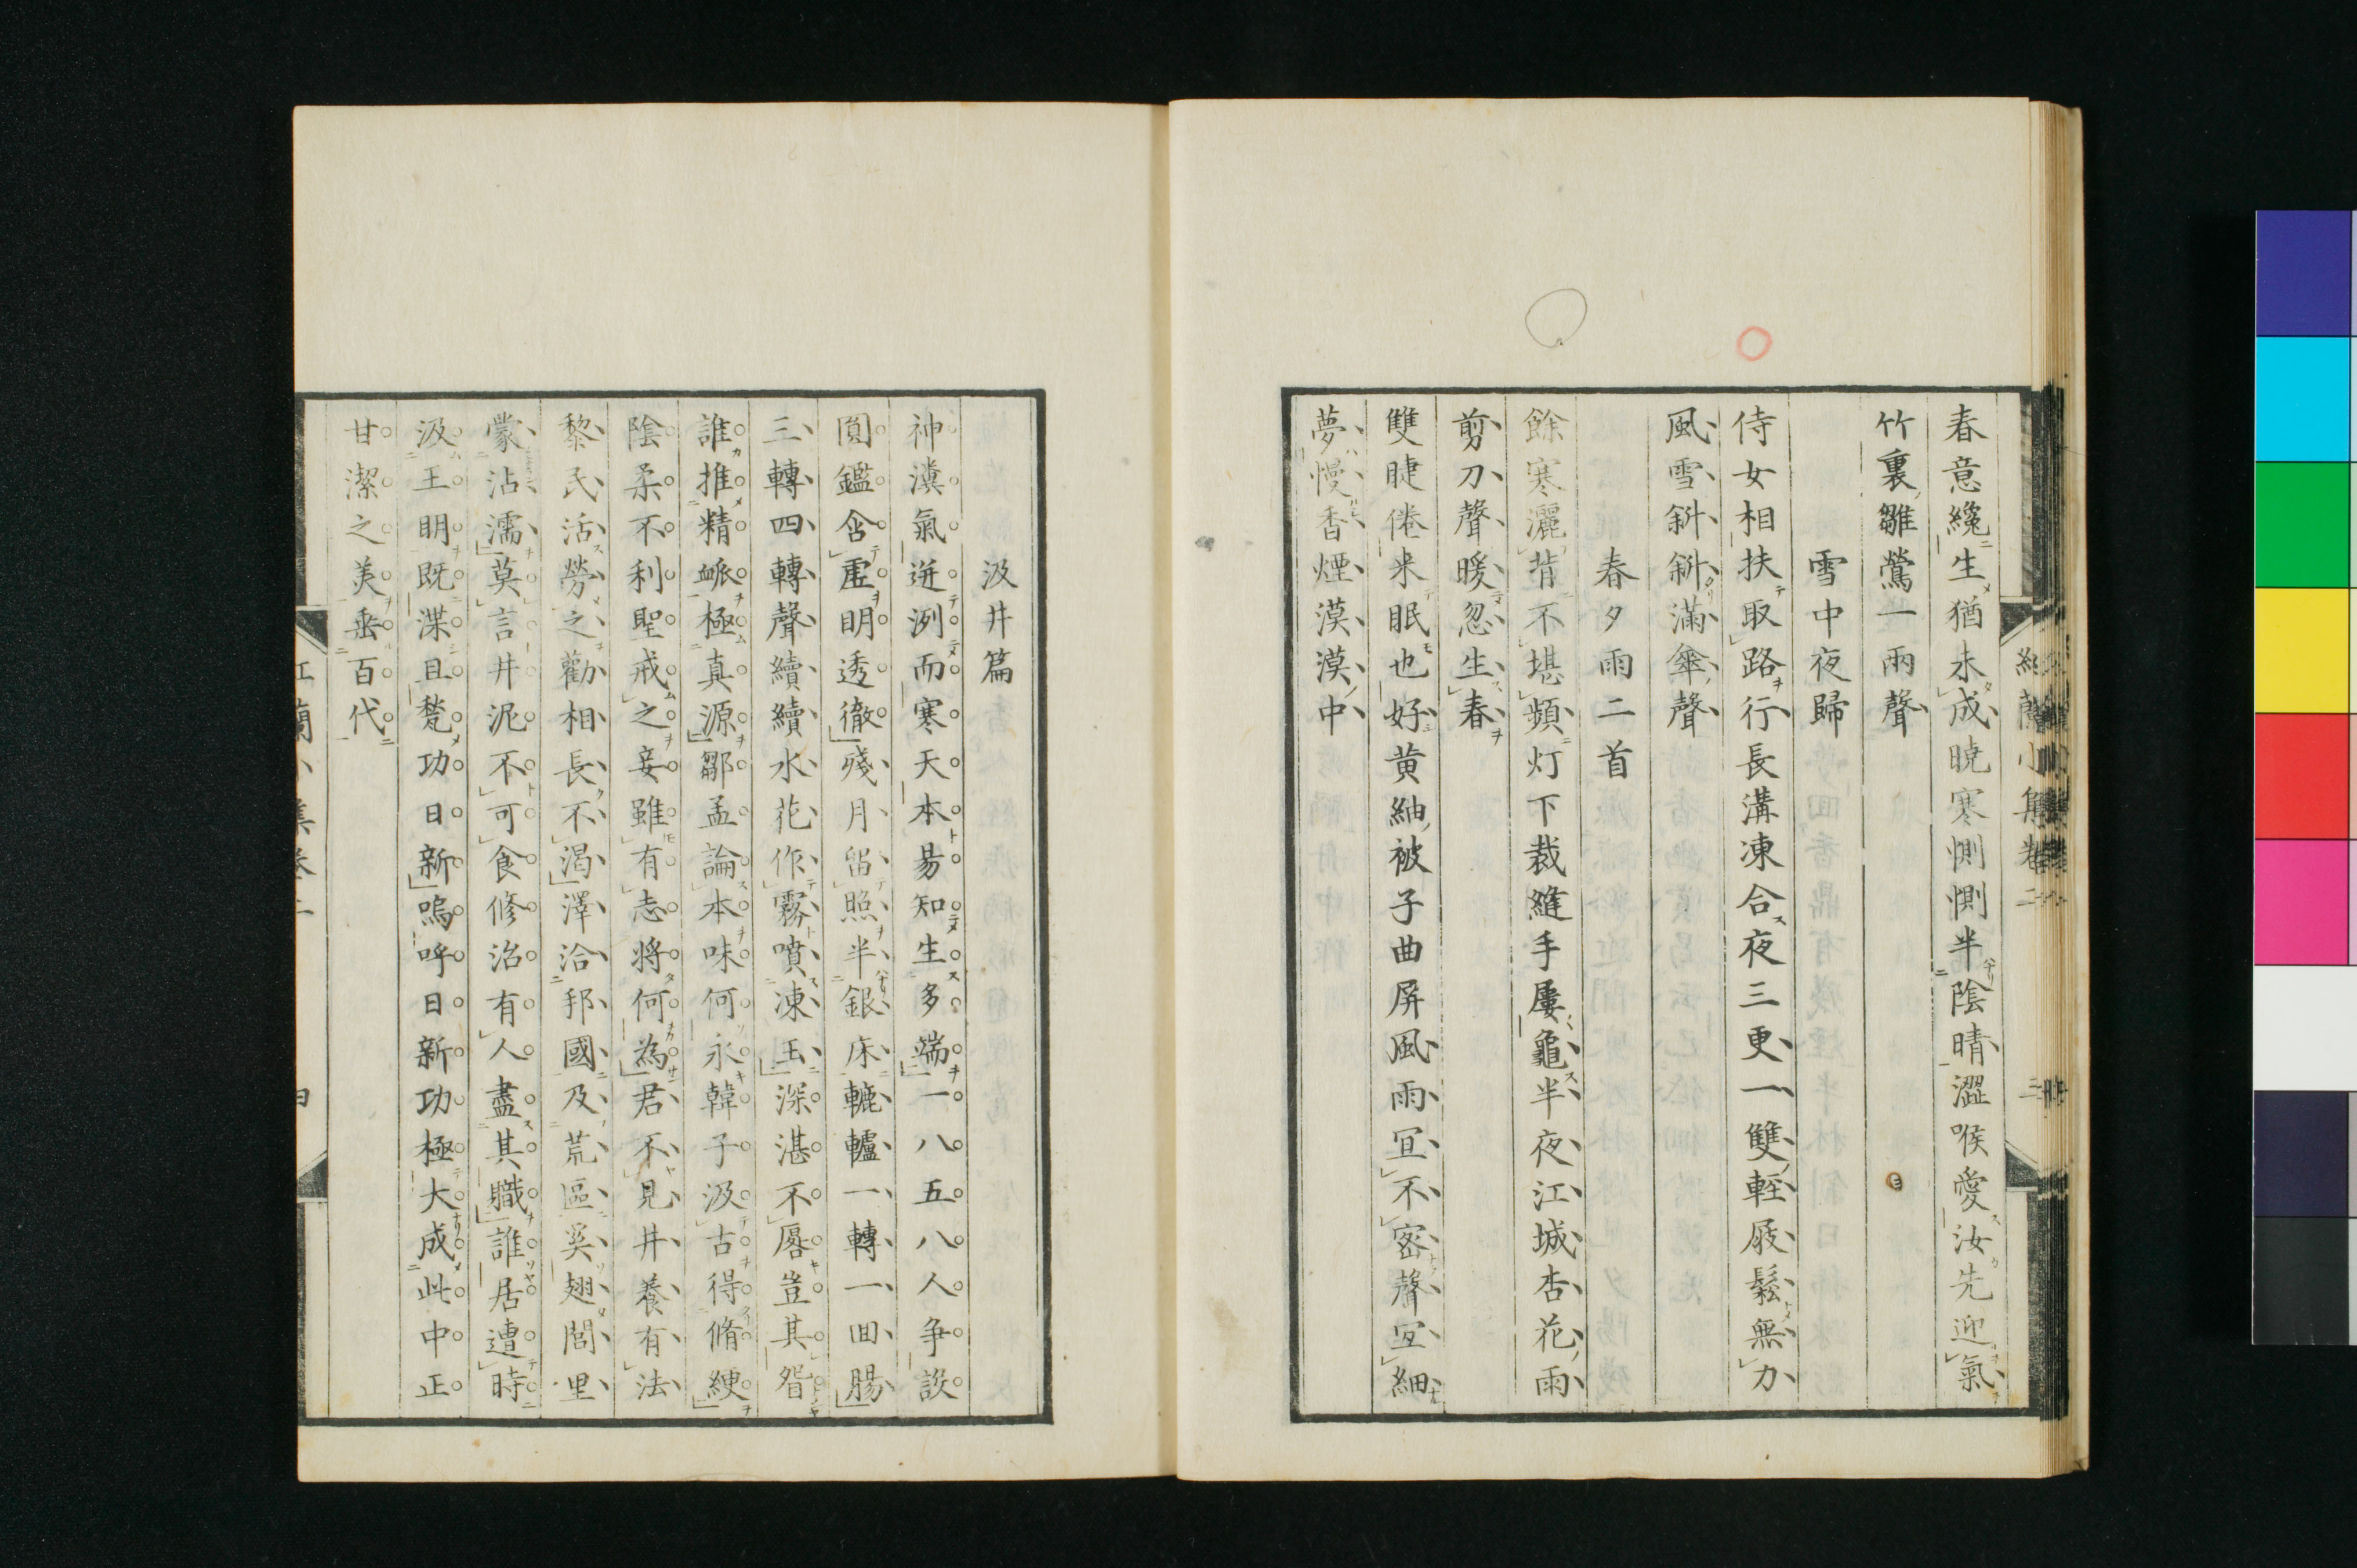 春意纔生猶未成曉寒惻惻半陰晴澀喉愛汝先迎氣
竹裏雛鶯一兩聲
雪中夜歸
侍女相扶取路行長溝凍合夜三更一雙輕屐鬆無力
風雪斜斜滿傘聲
春夕雨二首
餘寒灑背不堪頻灯下裁縫手屢龜半夜江城杏花雨
剪刀聲暖忽生春
雙睫倦來眠也好黄紬被子曲屏風雨冝不密聲冝細
夢慢香煙漠漠中
紅蘭小集卷二
汲井篇
神瀵氣迸洌而寒天本昜知生多端一八五八人争設
圓鑑含虛明透徹殘月留照半銀床轆轤一轉一回腸
三轉四轉聲續續水花作霧噴凍玉深湛不唇豈其眢
誰推精衇極真源鄒孟論本味何永韓子汲古得脩綆
陰柔不利聖戒之妾雖有志將何為君不見井養有法
黎民活勞之勸相長不渴澤洽邦國及荒區奚翅閭里
蒙沾濡莫言井泥不可食修治有人盡其職誰居遭時
汲王明既渫且甃功日新嗚呼日新功極大成此中正
甘潔之美垂百代
紅蘭小集卷二
四